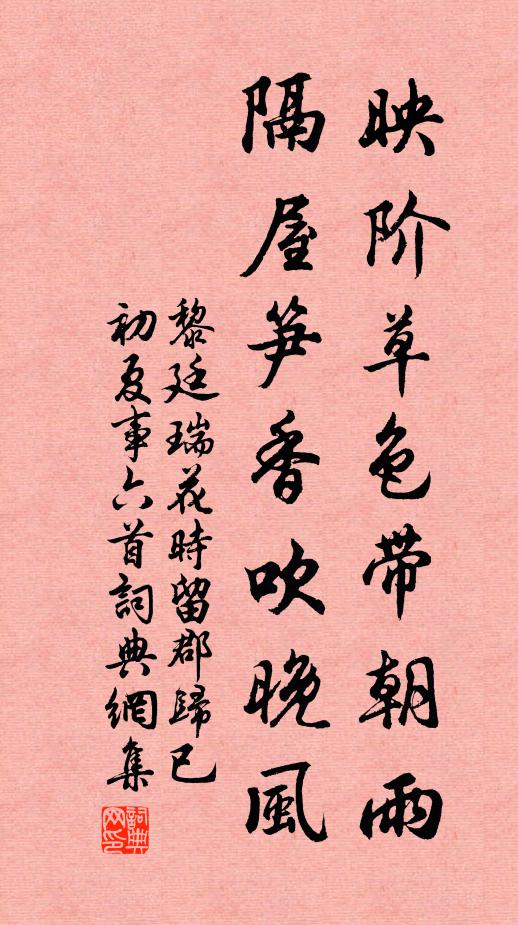 映阶草色带朝雨
隔屋笋香吹晚風
黎廷瑞花時留郡歸已
初夏事六首詞典網集
詞典
网印